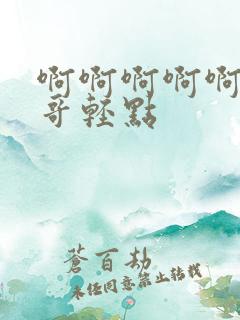 啊啊啊啊啊
哥輕點
蒼百劫
未任同意禁止轉載